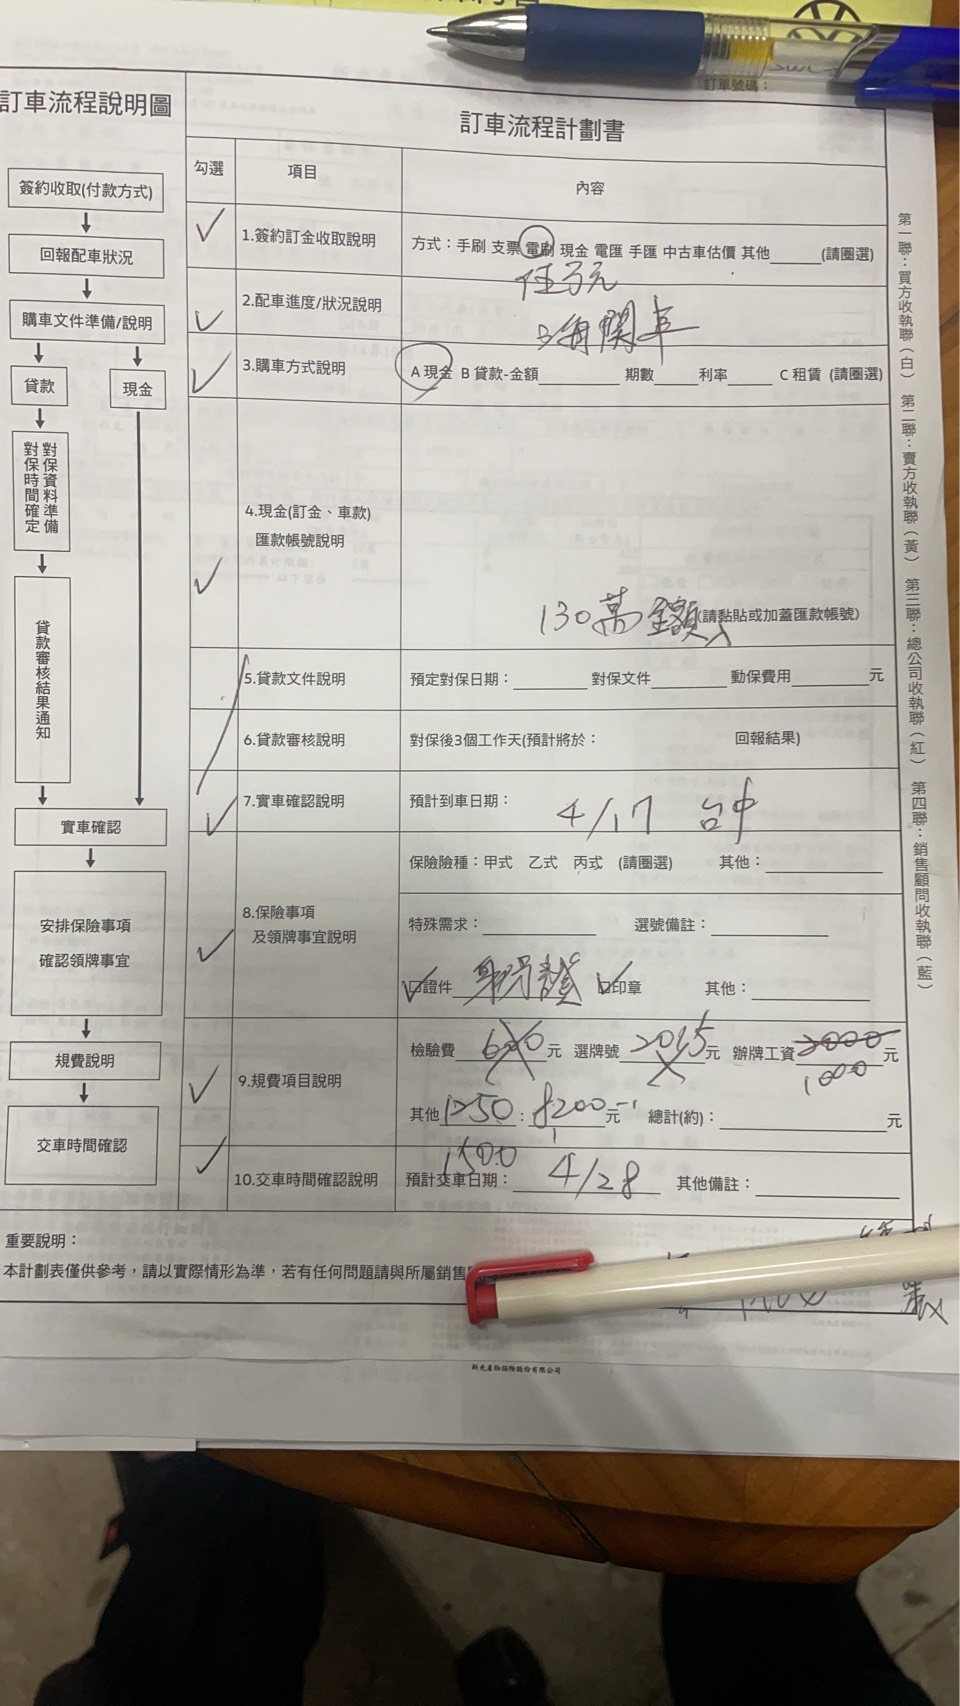 訂單號碼：
訂車流程說明圖
簽約收取(付款方式)
回報配車狀況
購車文件準備/說明
貸款
現金
對保資料準備
對保時間確定
貸款審核結果通知
實車確認
安排保險事項
確認領牌事宜
規費說明
交車時間確認
訂車流程計劃書
勾選 項目 內容
1.簽約訂金收取說明 方式：手刷 支票 電刷 現金 電匯 手匯 中古車估價 其他______(請圈選)
2.配車進度/狀況說明
3.購車方式說明 A 現金 B 貸款-金額______ 期數______利率______ C 租賃 (請圈選)
4.現金(訂金、車款)
匯款帳號說明
130萬 全額 (請黏貼或加蓋匯款帳號)
5.貸款文件說明 預定對保日期：______ 對保文件______ 動保費用______元
6.貸款審核說明 對保後3個工作天(預計將於： 回報結果)
7.實車確認說明 預計到車日期： 4/17 台中
8.保險事項
及領牌事宜說明
保險險種：甲式 乙式 丙式 (請圈選) 其他：______
特殊需求：______ 選號備註：______
口證件 口印章 其他：______
9.規費項目說明
檢驗費 600 元 選牌號 2015 元 辦牌工資 2000 元
1000
其他 1250 : 8200 元 總計(約)：______元
1500
10.交車時間確認說明 預計交車日期： 4/28 其他備註：______
重要說明：
本計劃表僅供參考，請以實際情形為準，若有任何問題請與所屬銷售
第一聯：買方收執聯（白） 第二聯：賣方收執聯（黃） 第三聯：總公司收執聯（紅） 第四聯：銷售顧問收執聯（藍）
新光產物保險股份有限公司